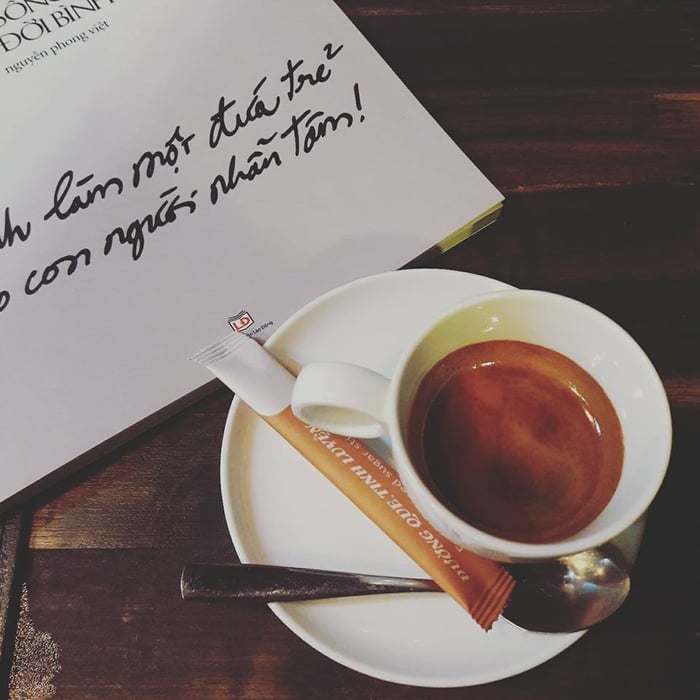 SỐNG
ĐỜI BÌNH
nguyễn phong việt
làm một đứa trẻ
con người nhẫn tâm!
LĐ
Lao Động
ĐƯỜNG QUE TINH LUYỆN
ed sugar sti